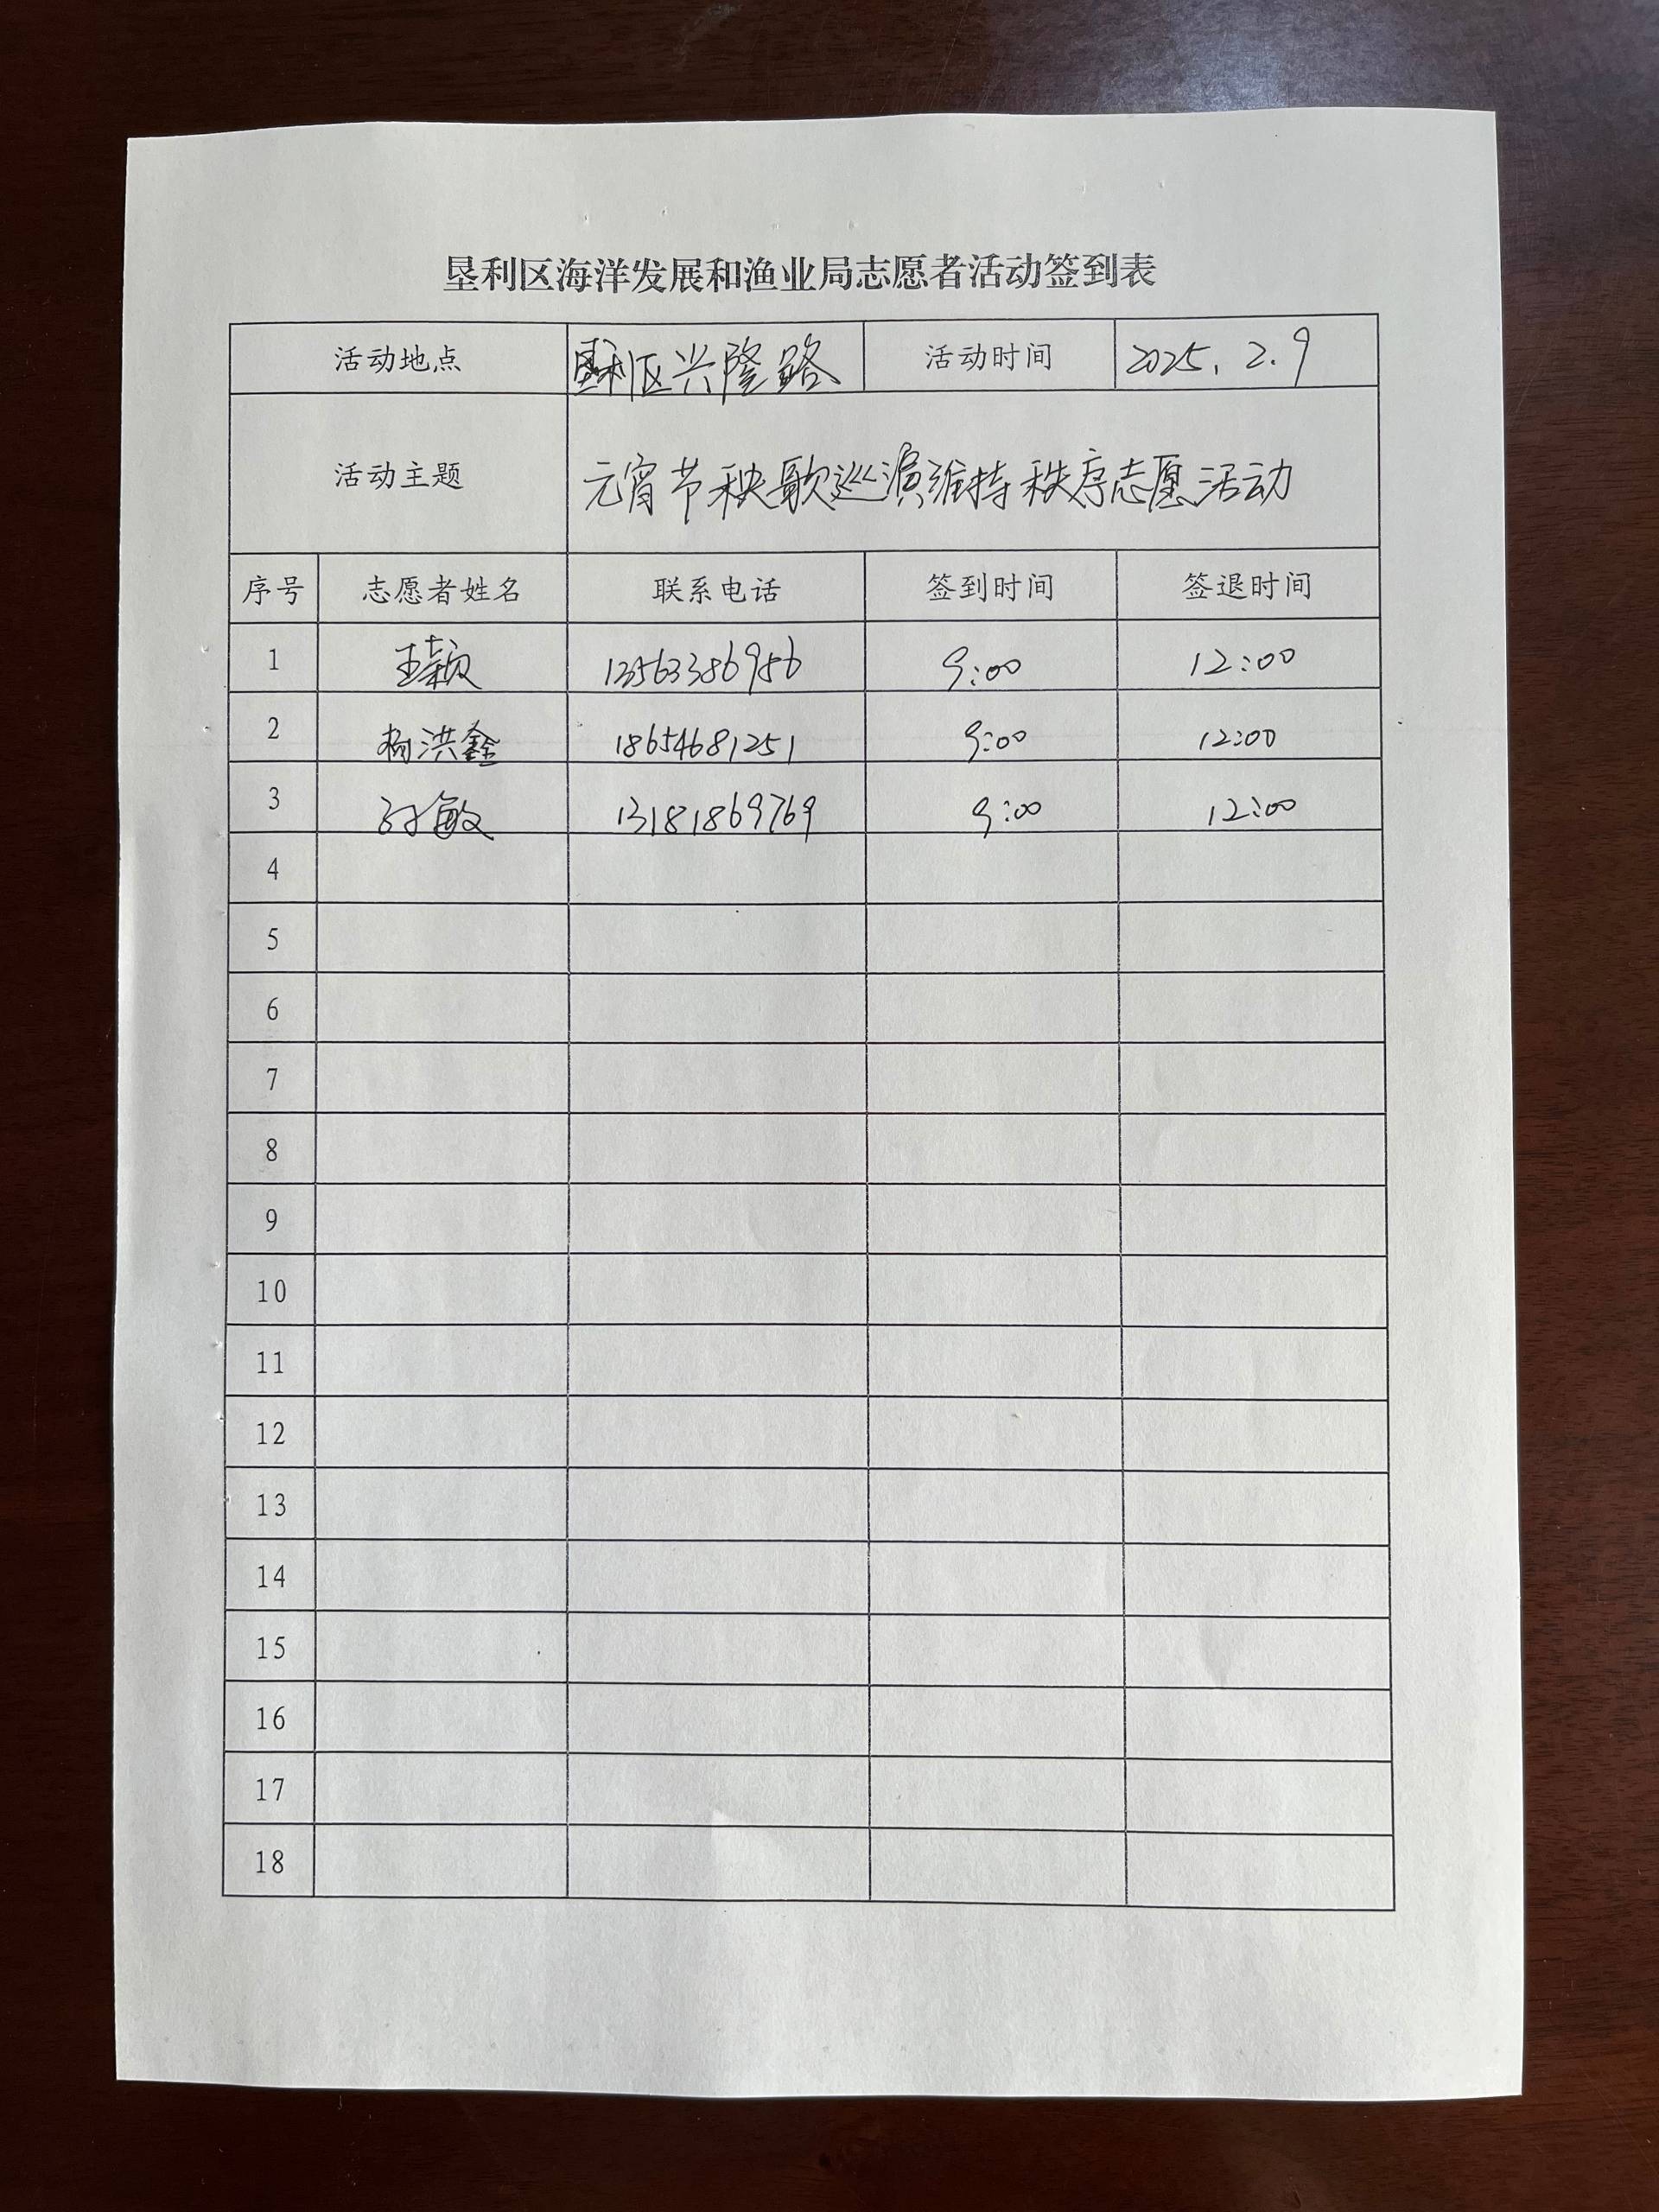 垦利区海洋发展和渔业局志愿者活动签到表
活动地点 垦利区兴隆路 活动时间 2025.2.9
活动主题 元宵节秧歌巡演维持秩序志愿活动
序号 志愿者姓名 联系电话 签到时间 签退时间
1 王颖 13563386956 9:00 12:00
2 杨洪鑫 18654681251 9:00 12:00
3 孙敏 13181869769 9:00 12:00
4
5
6
7
8
9
10
11
12
13
14
15
16
17
18